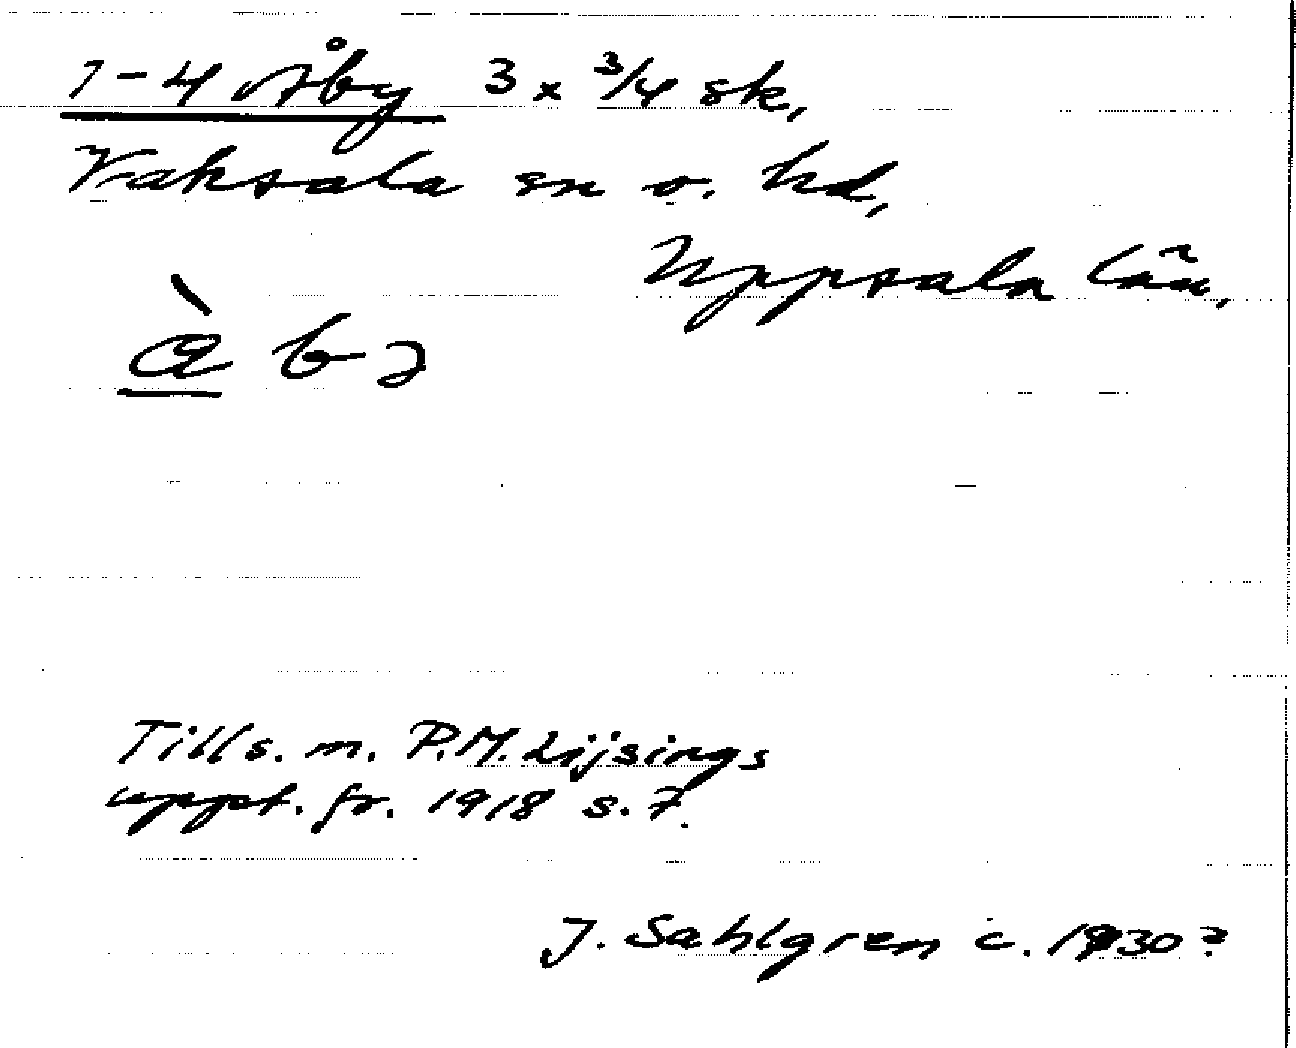 1-4 Åby 3 x 3/4 sk,
Vaksala sn o. hd,
Uppsala län,
à b ɿ
Tills. m. P.M. Lijsings
uppt. fr. 1918 s. 7.
J. Sahlgren c. 1930?